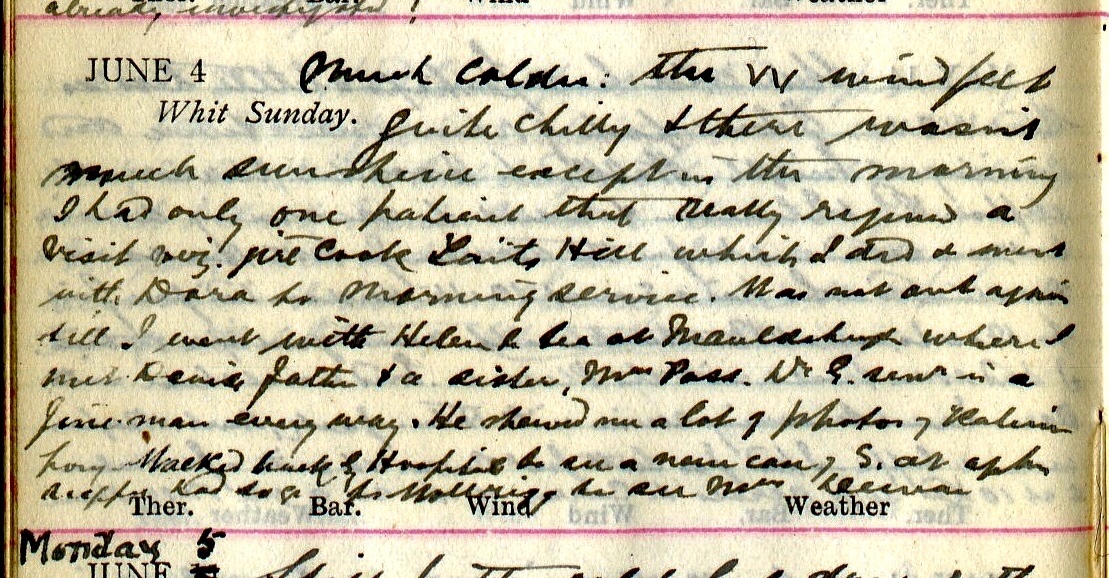 already investigated!
Ther. Bar. Wind Weather
JUNE 4 Much colder: the W wind felt
Whit Sunday. quite chilly & there wasn't
much sunshine except in the morning
I had only one patient that really required a
visit viz. Cook Hill which I did & went
with Dora to morning service. Was not out again
till I went with Helen to tea at where I
met father & a sister, Mrs Pass. Dr G. senr is a
fine man every way. He showed me a lot of photos of
Walked back by Hospital to see a new case of S. at
supper had to go to to see Mrs
Ther. Bar. Wind Weather
Monday 5
JUNE